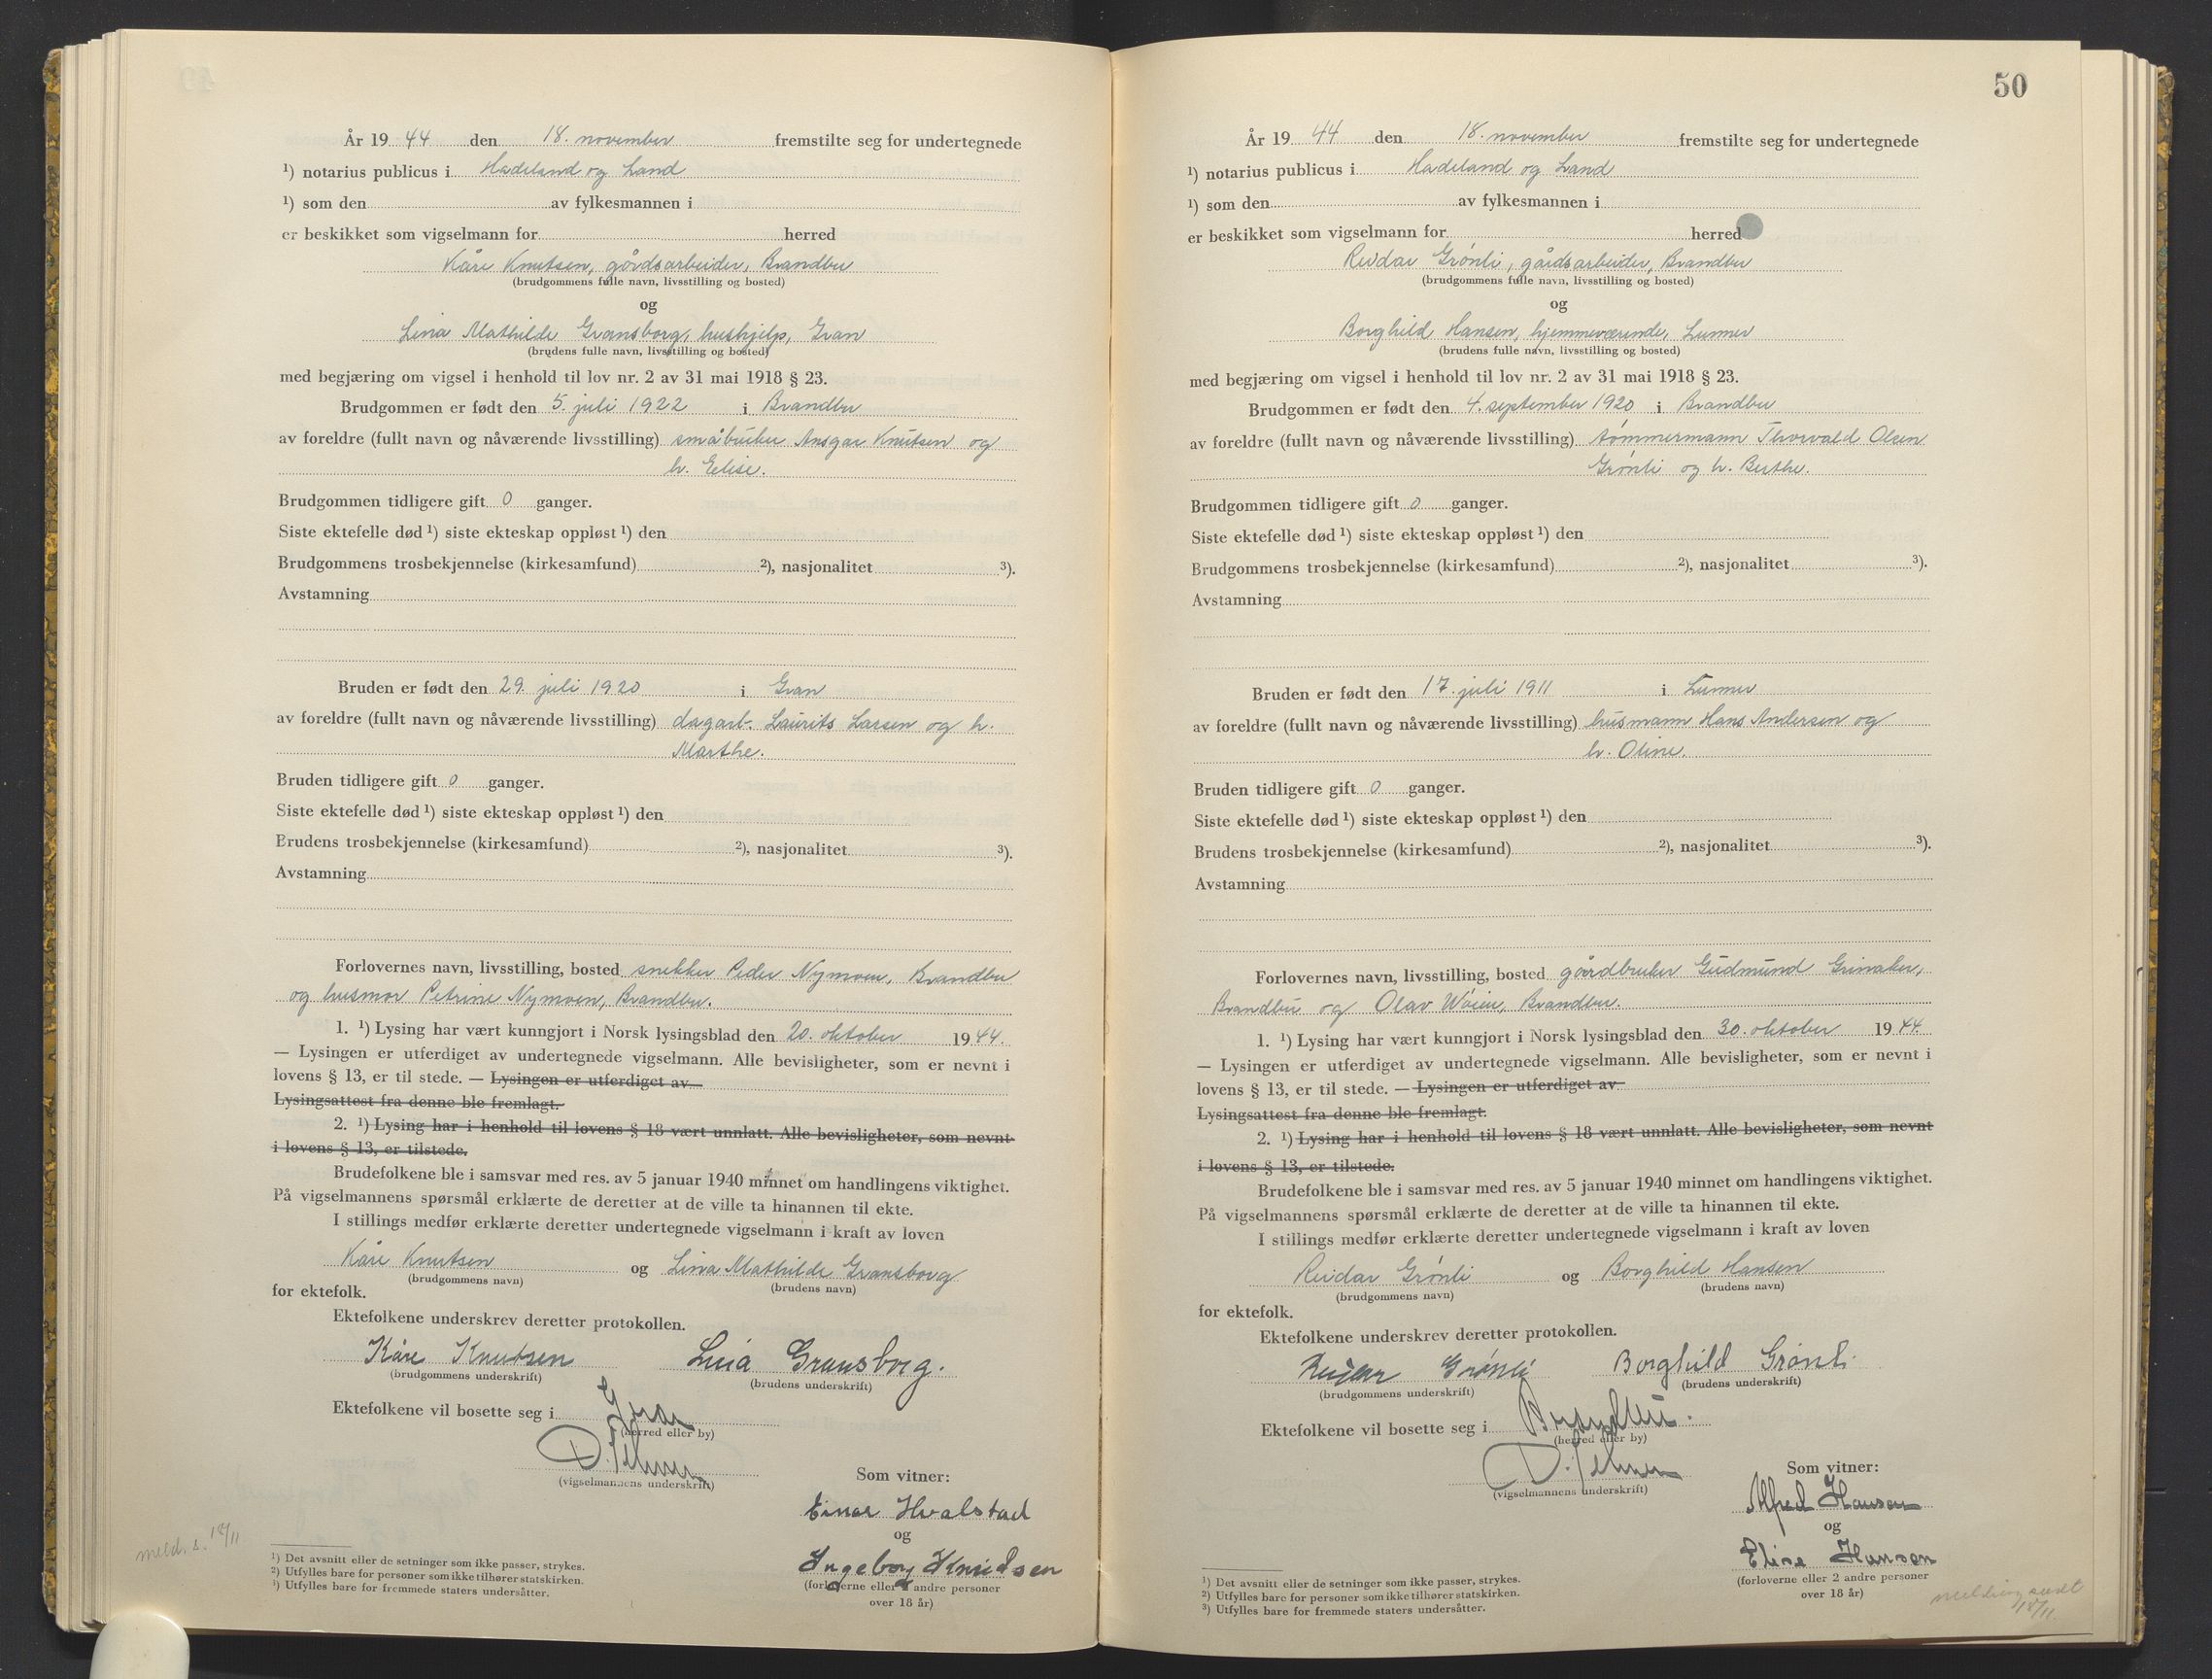 År 19 44 den 18. november fremstilte seg for undertegnede
¹) notarius publicus i Hadeland og Land
¹) som den av fylkesmannen i
er beskikket som vigselmann for herred
Kåre Knutsen, gårdsarbeider, Brandbu
(brudgommens fulle navn, livsstilling og bosted)
og
Lina Mathilde Gransborg, hushjelp, Gran
(brudens fulle navn, livsstilling og bosted)
med begjæring om vigsel i henhold til lov nr. 2 av 31 mai 1918 § 23.
Brudgommen er født den 5. juli 1922 i Brandbu
av foreldre (fullt navn og nåværende livsstilling) småbruker Ansgar Knutsen og
h. Elise.
Brudgommen tidligere gift 0 ganger.
Siste ektefelle død ¹) siste ekteskap oppløst ¹) den
Brudgommens trosbekjennelse (kirkesamfund) ²), nasjonalitet ³).
Avstamning
Bruden er født den 29. juli 1920 i Gran
av foreldre (fullt navn og nåværende livsstilling) dagarb. Laurits Larsen og h.
Marthe.
Bruden tidligere gift 0 ganger.
Siste ektefelle død ¹) siste ekteskap oppløst ¹) den
Brudens trosbekjennelse (kirkesamfund) ²), nasjonalitet ³).
Avstamning
Forlovernes navn, livsstilling, bosted snekker Peder Nymoen, Brandbu
og husmor Petrine Nymoen, Brandbu.
1. ¹) Lysing har vært kunngjort i Norsk lysingsblad den 20. oktober 19 44.
— Lysingen er utferdiget av undertegnede vigselmann. Alle bevisligheter, som er nevnt i
lovens § 13, er til stede. — Lysingen er utferdiget av
Lysingsattest fra denne ble fremlagt.
2. ¹) Lysing har i henhold til lovens § 18 vært unnlatt. Alle bevisligheter, som nevnt
i lovens § 13, er tilstede.
Brudefolkene ble i samsvar med res. av 5 januar 1940 minnet om handlingens viktighet.
På vigselmannens spørsmål erklærte de deretter at de ville ta hinannen til ekte.
I stillings medfør erklærte deretter undertegnede vigselmann i kraft av loven
Kåre Knutsen og Lina Mathilde Gransborg
(brudgommens navn) (brudens navn)
for ektefolk.
Ektefolkene underskrev deretter protokollen.
Kåre Knutsen Lina Gransborg.
(brudgommens underskrift) (brudens underskrift)
Ektefolkene vil bosette seg i Gran
(herred eller by)
(vigselmannens underskrift)
Som vitner:
Einar Hvalstad
og
Ingeborg Knudsen
(forloverne eller 2 andre personer
over 18 år)
meld. s. 18/11
¹) Det avsnitt eller de setninger som ikke passer, strykes.
²) Utfylles bare for personer som ikke tilhører statskirken.
³) Utfylles bare for fremmede staters undersåtter.
50
År 19 44 den 18. november fremstilte seg for undertegnede
¹) notarius publicus i Hadeland og Land
¹) som den av fylkesmannen i
er beskikket som vigselmann for herred
Reidar Grønli, gårdsarbeider, Brandbu
(brudgommens fulle navn, livsstilling og bosted)
og
Borghild Hansen, hjemmeværende, Lunner
(brudens fulle navn, livsstilling og bosted)
med begjæring om vigsel i henhold til lov nr. 2 av 31 mai 1918 § 23.
Brudgommen er født den 4. september 1920 i Brandbu
av foreldre (fullt navn og nåværende livsstilling) tømmermann Thorvald Olsen
Grønli og h. Berthe.
Brudgommen tidligere gift 0 ganger.
Siste ektefelle død ¹) siste ekteskap oppløst ¹) den
Brudgommens trosbekjennelse (kirkesamfund) ²), nasjonalitet ³).
Avstamning
Bruden er født den 17. juli 1911 i Lunner
av foreldre (fullt navn og nåværende livsstilling) husmann Hans Andersen og
h. Oline.
Bruden tidligere gift 0 ganger.
Siste ektefelle død ¹) siste ekteskap oppløst ¹) den
Brudens trosbekjennelse (kirkesamfund) ²), nasjonalitet ³).
Avstamning
Forlovernes navn, livsstilling, bosted gårdbruker Gudmund Grinaker,
Brandbu og Olav Wøien, Brandbu.
1. ¹) Lysing har vært kunngjort i Norsk lysingsblad den 30. oktober 19 44
— Lysingen er utferdiget av undertegnede vigselmann. Alle bevisligheter, som er nevnt i
lovens § 13, er til stede. — Lysingen er utferdiget av
Lysingsattest fra denne ble fremlagt.
2. ¹) Lysing har i henhold til lovens § 18 vært unnlatt. Alle bevisligheter, som nevnt
i lovens § 13, er tilstede.
Brudefolkene ble i samsvar med res. av 5 januar 1940 minnet om handlingens viktighet.
På vigselmannens spørsmål erklærte de deretter at de ville ta hinannen til ekte.
I stillings medfør erklærte deretter undertegnede vigselmann i kraft av loven
Reidar Grønli og Borghild Hansen
(brudgommens navn) (brudens navn)
for ektefolk.
Ektefolkene underskrev deretter protokollen.
Reidar Grønli Borghild Grønli.
(brudgommens underskrift) (brudens underskrift)
Ektefolkene vil bosette seg i Brandbu.
(herred eller by)
(vigselmannens underskrift)
Som vitner:
Alfred Hansen
og
Elise Hansen
(forloverne eller 2 andre personer
over 18 år)
melding sendt
18/11
¹) Det avsnitt eller de setninger som ikke passer, strykes.
²) Utfylles bare for personer som ikke tilhører statskirken.
³) Utfylles bare for fremmede staters undersåtter.